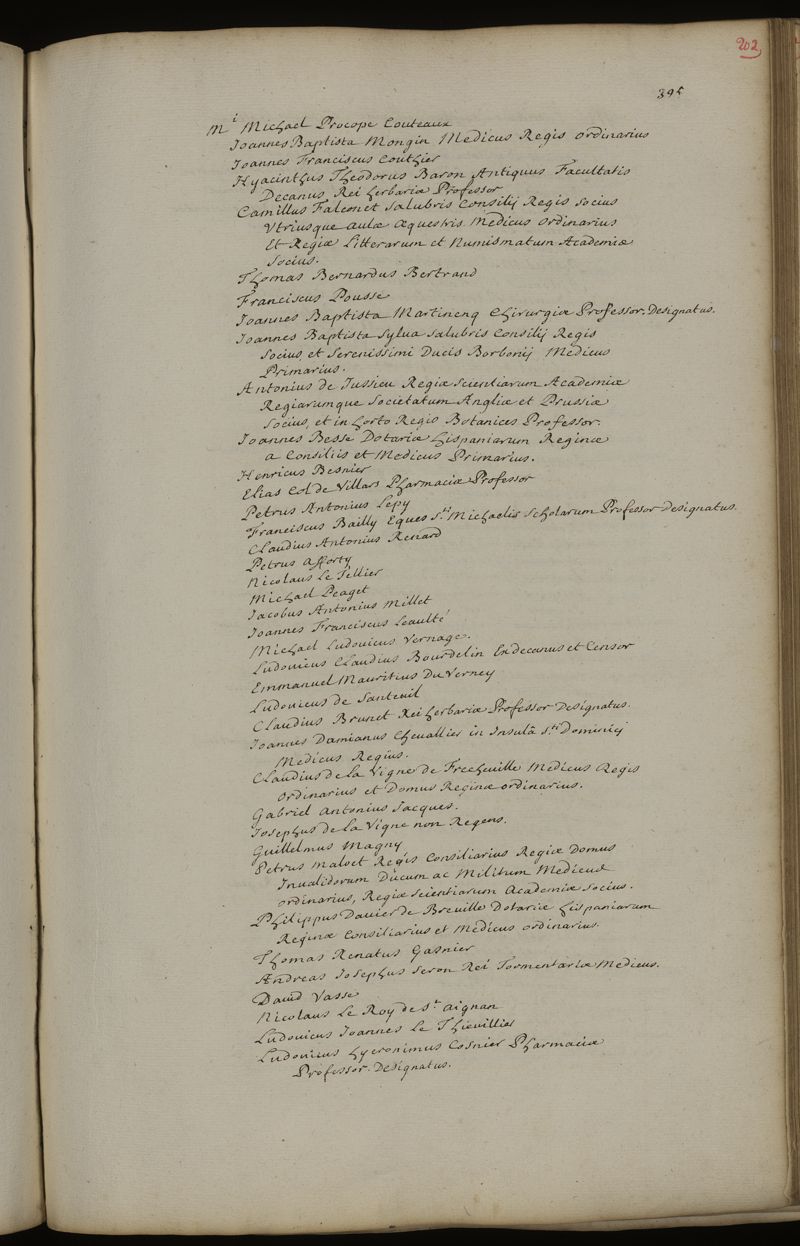 202
395
Mi Michael Procope Couteaux
Joannes Baptista Mongin Medicus Regis ordinarius
Joannes Franciscus Couthier
Hyacinthus Theodorus Baron Antiquus Facultatis
Decanus Rei herbariæ Professor
Camillus Falconet Salubris Consilij Regis Socius
Vtriusque aulæ æquestris Medicus ordinarius
Et Regiæ Litterarum et Numismatum Academiæ
Socius.
Thomas Bernardus Bertrand
Franciscus Pousse
Joannes Baptista Martineng Chirurgiæ Professor Designatus.
Joannes Baptista Sylua Salubris Consilij Regis
Socius et Serenissimi Ducis Borbonij Medicus
Primarius.
Antonius de Jussieu Regiæ Scientiarum Academiæ
Regiarumque Societatum Angliæ et Prussiæ
Socius, et in horto Regis Botanices Professor.
Joannes Besse Dotariæ hispaniarum Reginæ
a Consiliis et Medicus Primarius.
Henricus Besnier
Elias Col de Villars Pharmaciæ Professor
Petrus Antonius Lepy
Franciscus Bailly Eques Sti Michaelis Scholarum Professor Designatus.
Claudius Antonius Renard
Petrus afforty
Nicolaus Le Tellier
Michael Peaget
Jacobus Antonius Millet
Joannes Franciscus Leaulté
Michael Ludouicus Vernage.
Ludouicus Claudius Bourdelin Exdecanus et Censor
Emmanuel Mauritius Du Verney
Ludouicus de Santeuil
Claudius Brunet Rei herbariæ Professor Designatus.
Joannes Damianus Cheuallier in Insulâ Sti Dominici
Medicus Regius.
Claudius de La Vigne de Frecheuille Medicus Regis
ordinarius et Domus Reginæ ordinarius.
Gabriel Antonius Jacques.
Josephus de La Vigne non Regens.
Guillelmus Magny
Petrus Maloet Regis Consiliarius Regiæ Domus
Inualidorum Ducum ac Militum Medicus
ordinarius, Regiæ Scientiarum Academiæ Socius.
Philippus Dauier de Breuille Dotariæ hispaniarum
Reginæ Consiliarius et Medicus ordinarius.
Thomas Renatus Gasnier
Andreas Josephus Seron Rei Tormentariæ Medicus.
Dauid Vasse
Nicolaus Le Roy de St aignan
Ludouicus Joannes Le Thieullier
Ludouicus hyeronimus Cosnier Pharmaciæ
Professor Designatus.